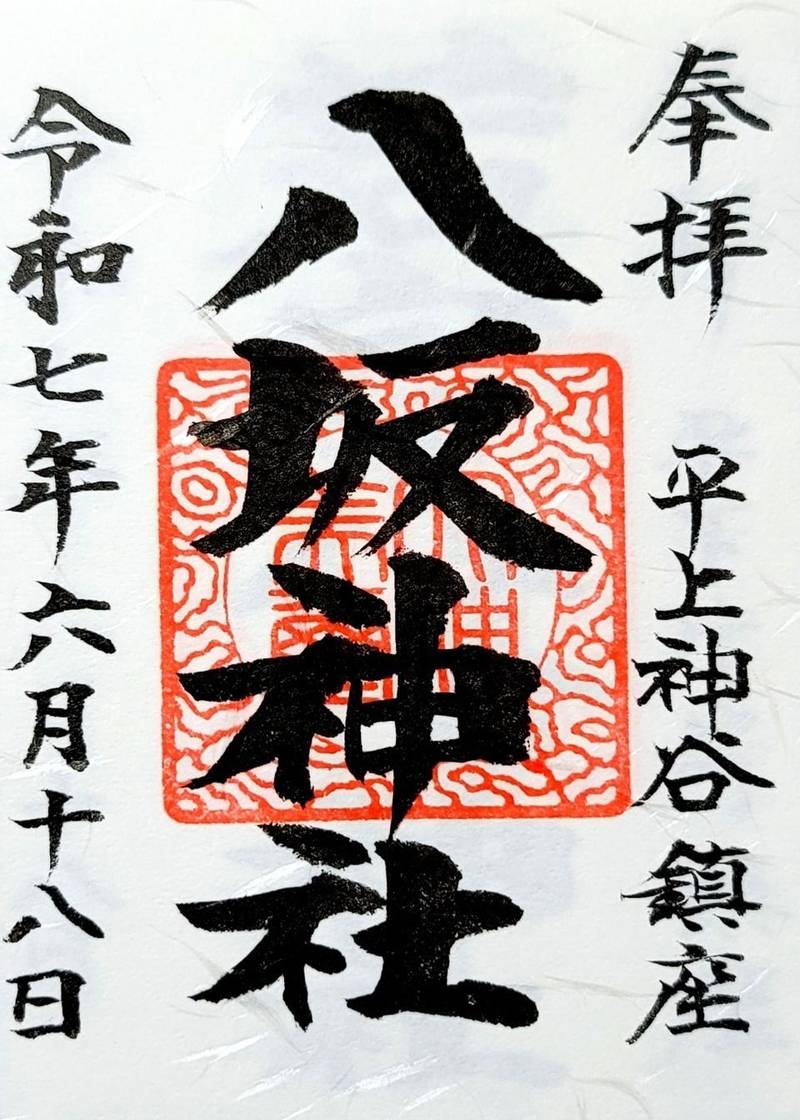 奉拝
平上神谷鎮座
八坂神社
令和七年六月十八日